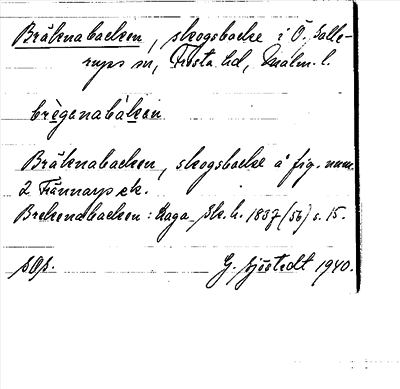 Bräknabacken, skogsbacke i Ö. Salle-
rups sn, Frosta hd, Malm. l.
brègənabákən
Bräknabacken, skogsbacke å fig. num.
2 Fännarps ek.
Brekenabacken: Laga Sk. h. 1837 (56) s. 15.
sOs. G. Sjöstedt 1940.